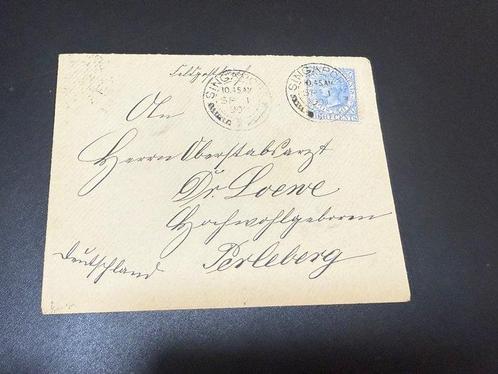 Feldpostbrief
SINGAPORE
10.45 AM
SP 1
SINGAPORE
10.45 AM
SP 1
CENTS
An
Herrn Oberstabsarzt
Dr. Loewe
Hochwohlgeboren
Perleberg
Deutschland